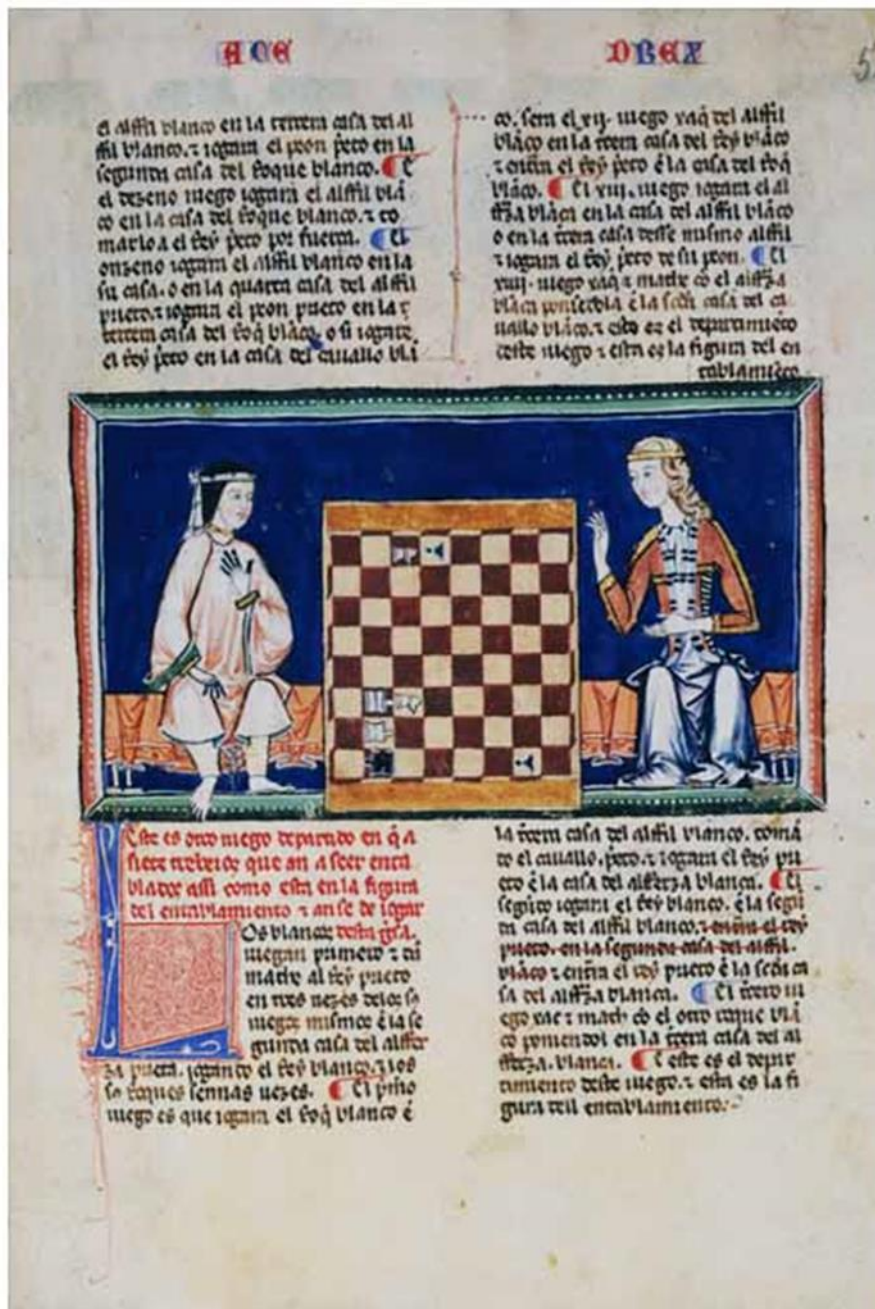 ACE DREX
5
el alffil blanco en la tercera casa del al
ffil blanco. ⁊ iogara el peon preto en la
segunda casa del Roque blanco. E
el dezeno iuego iogara el alffil blā
co en la casa del Roque blanco. ⁊ to
marlo a el Rey preto por fuerça. El
onzeno iogara el alffil blanco en la
su casa. o en la quarta casa del alffil
prieto. ⁊ iogara el peon prieto en la
tercera casa del Roq̄ blāco. o si iogare
el Rey prēto en la casa del cauallo blā
co. sera el xij. iuego xaq̄ del alffil
blāco en la t̄cera casa del Rey blāco
⁊ entra el Rey prēto ē la casa del Roq̄
blāco. El xiij. iuego iogara el al
fferza blāca en la casa del alffil blāco
o en la t̄cera casa desse mismo alffil
⁊ iogara el Rey prēto de su peon. El
xiiij. iuego xaq̄ ⁊ math cō el alfferza
blāca poniendola ē la segūda casa del ca
uallo blāco. ⁊ esto es el departimiēto
deste iuego ⁊ esta es la figura del en
tablamiēto.
Este es otro iuego departido en q̄ a
siete trebeios que an a seer enta
blados assi como esta en la figura
del entablamiento ⁊ an se de iogar
Los blancos desta guisa.
iuegan primero ⁊ dā
mathe al Rey prieto
en tres uezes delos so
iuegos mismos ē la se
gunda casa del alffer
za prieta. iogando el Rey blanco. ⁊ los
sos Roques sennas uezes. El p̄mo
iuego es que iogara el Roq̄ blanco ē
la t̄cera casa del alffil blanco. tomā
do el cauallo. prēto. ⁊ iogara el Rey pri
eto ē la casa del alfferza blanca. El
segūdo iogara el Rey blanco. ē la segū
da casa del alffil blanco. ⁊ entra el Rey
prieto. en la segunda casa del alffil.
blāco ⁊ entra el Rey prieto ē la segūda ca
sa del alfferza blanca. El t̄cero iu
ego xac ⁊ math cō el otro roque blā
co poniendol en la t̄cera casa del al
fferza. blanca. E este es el depar
timiento deste iuego. ⁊ esta es la fi
gura dell entablamiento.